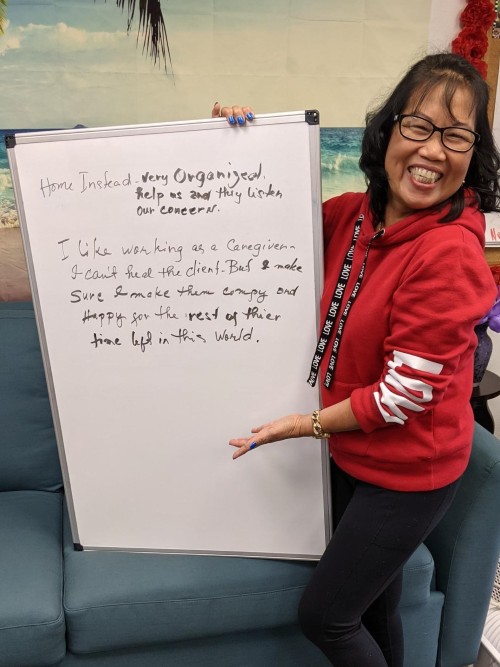 Home Instead - very Organized.
help us and they listen
our concern.
I like working as a Caregiver -
I can't heal the client - But I make
sure I make them compy and
Happy for the rest of thier
time left in this World.
LOVE LOVE LOVE LOVE LOVE